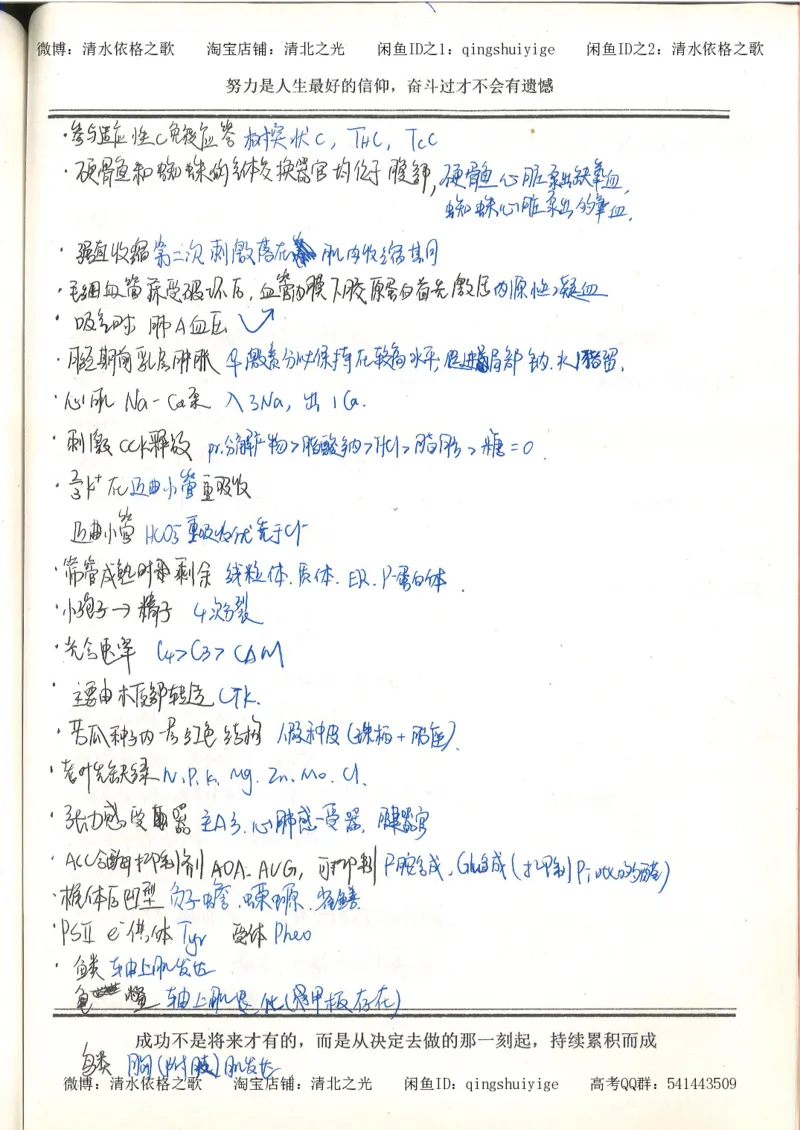 微博：清水依格之歌 淘宝店铺：清北之光 闲鱼ID之1：qingshuiyige 闲鱼ID之2：清水依格之歌
努力是人生最好的信仰，奋斗过才不会有遗憾
·参与适应性C免疫应答 树突状C，THC，TcC
·硬骨鱼和蜘蛛的气体交换器官均位于腹部，硬骨鱼心脏泵出缺氧血，
蜘蛛心脏泵出的氧血．
·强直收缩 第二次刺激落在肌肉收缩其间
·毛细血管 破坏后，血管内膜下胶原蛋白首先激活内原性凝血
·吸气时 肺A血压
·月经期前乳房肿胀 激素分泌保持在较高水平，促进局部钠．水 留．
·心肌 Na－Ca泵 入3Na，出1Ca．
·刺激CCK释放 pr.分解产物＞脂酸钠＞HCl＞脂肪＞糖＝0．
·⅔K⁺在近曲小管重吸收
近曲小管 HCO₃⁻重吸收优先于Cl⁻
·筛管成熟时剩余 线粒体．质体．ER．P-蛋白体．
·小孢子→精子 4次分裂
·光合速率 C₄＞C₃＞CAM
·主要由木质部转运CTK．
·苦瓜种子内 红色结构 假种皮(珠柄＋胎座)．
·老叶先缺绿 N．P．K．Mg．Zn．Mo．Cl．
·张力感受器 主A弓．心肺感受器．腱器官
·ACC合酶抑制剂AOA．AVG，可抑制 合成．合成(抑制Pi 的酶)
·椎体后凹型 负子蟾．蝾螈．雀鳝
·PSⅡ e⁻供体Tyr 受体Pheo
·鱼类 轴上肌发达
龟 轴上肌退化(背甲板存在)
成功不是将来才有的，而是从决定去做的那一刻起，持续累积而成
鸟类 胸(附肢)肌发达
微博：清水依格之歌 淘宝店铺：清北之光 闲鱼ID：qingshuiyige 高考QQ群：541443509